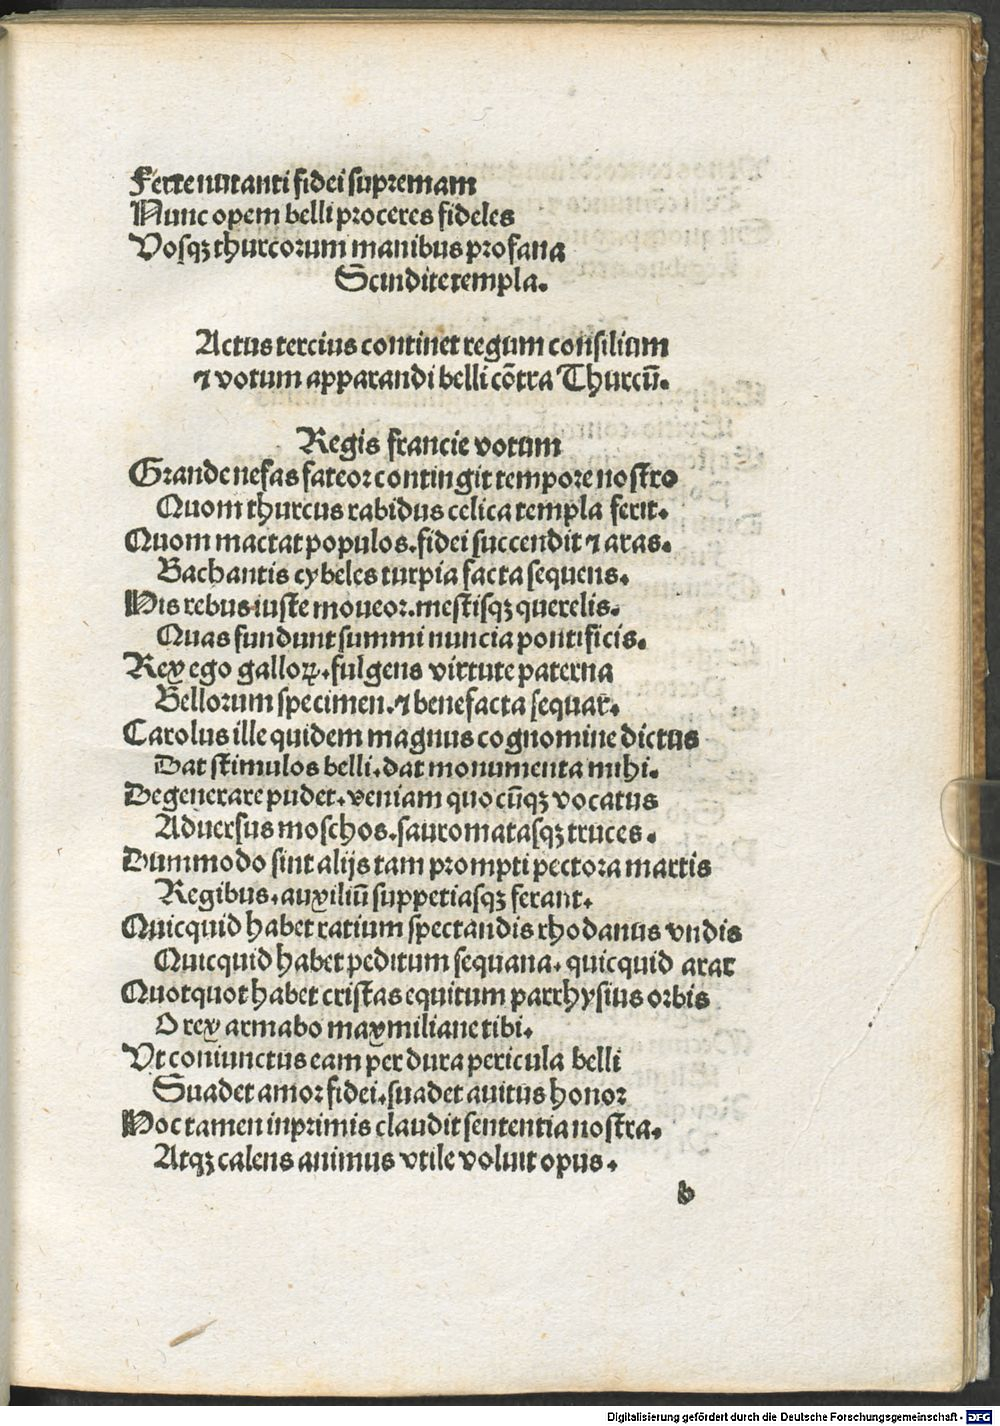 Ferte nutanti fidei supremam
Nunc opem belli proceres fideles
Vosqꝫ thurcorum manibus profana
Scindite templa.
Actus tercius continet regum consilium
⁊ votum apparandi belli cõtra Thurcũ.
Regis francie votum
Grande nefas fateor contingit tempore nostro
Quom thurcus rabidus celica templa ferit.
Quom mactat populos. fidei succendit ⁊ aras.
Bachantis cybeles turpia facta sequens.
His rebus iuste moueor. mestisqꝫ querelis.
Quas fundunt summi nuncia pontificis.
Rex ego galloꝝ. fulgens virtute paterna
Bellorum specimen. ⁊ benefacta sequar.
Carolus ille quidem magnus cognomine dictus
Dat stimulos belli. dat monumenta mihi.
Degenerare pudet. veniam quocũqꝫ vocatus
Aduersus moschos. sauromatasqꝫ truces.
Dummodo sint alijs tam prompti pectora martis
Regibus. auxiliũ suppetiasqꝫ ferant.
Quicquid habet ratium spectandis rhodanus vndis
Quicquid habet peditum sequana. quicquid arar
Quotquot habet cristas equitum parrhysius orbis
O rex armabo maxmiliane tibi.
Vt coniunctus eam per dura pericula belli
Suadet amor fidei. suadet auitus honor
Hoc tamen inprimis claudit sententia nostra.
Atqꝫ calens animus vtile voluit opus.
b
Digitalisierung gefördert durch die Deutsche Forschungsgemeinschaft - DFG